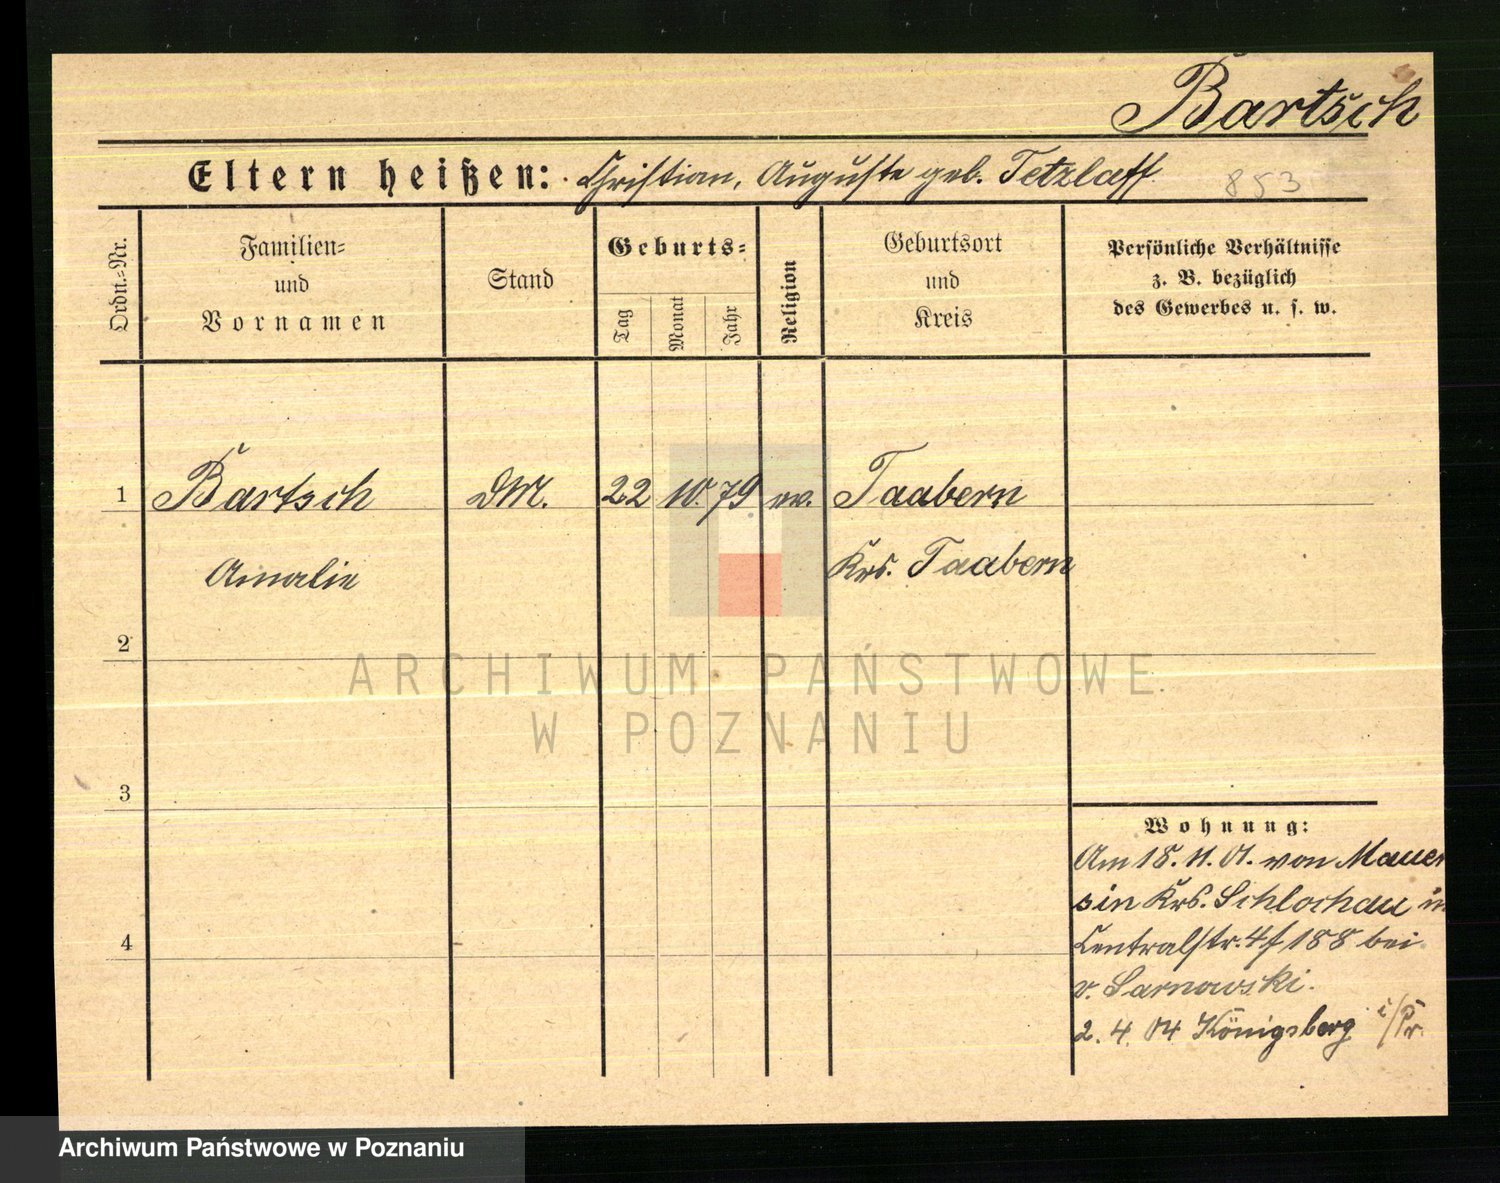 Bartsch
Eltern heißen: Christian, Auguste geb. Tetzlaff.
853
Ordn.=Nr.
Familien=
und
Vornamen
Stand
Geburts=
Tag
Monat
Jahr
Religion
Geburtsort
und
Kreis
Persönliche Verhältnisse
z. B. bezüglich
des Gewerbes u. s. w.
1 Bartsch DM. 22 10. 79. ev. Taabern
Amalie Krs. Taabern
2
ARCHIWUM PAŃSTWOWE
W POZNANIU
3
Wohnung:
Am 18. 11. 01. von Mauer
sin Krs. Schlochau in
4
Centralstr. 4 188 bei
v. Sarnowski.
2. 4. 04 Königsberg i/Pr.
Archiwum Państwowe w Poznaniu